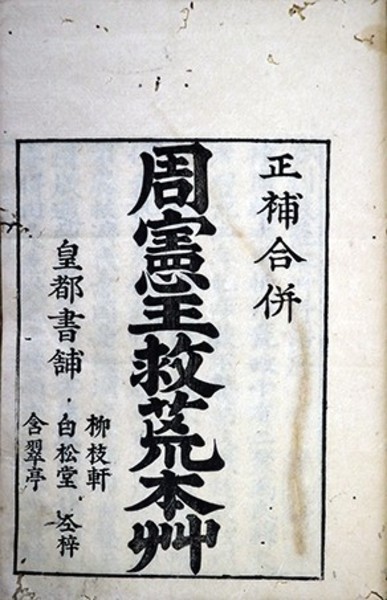 正補合併
周憲王救荒本艸
皇都書舖
柳枝軒
白松堂 仝梓
含翠亭